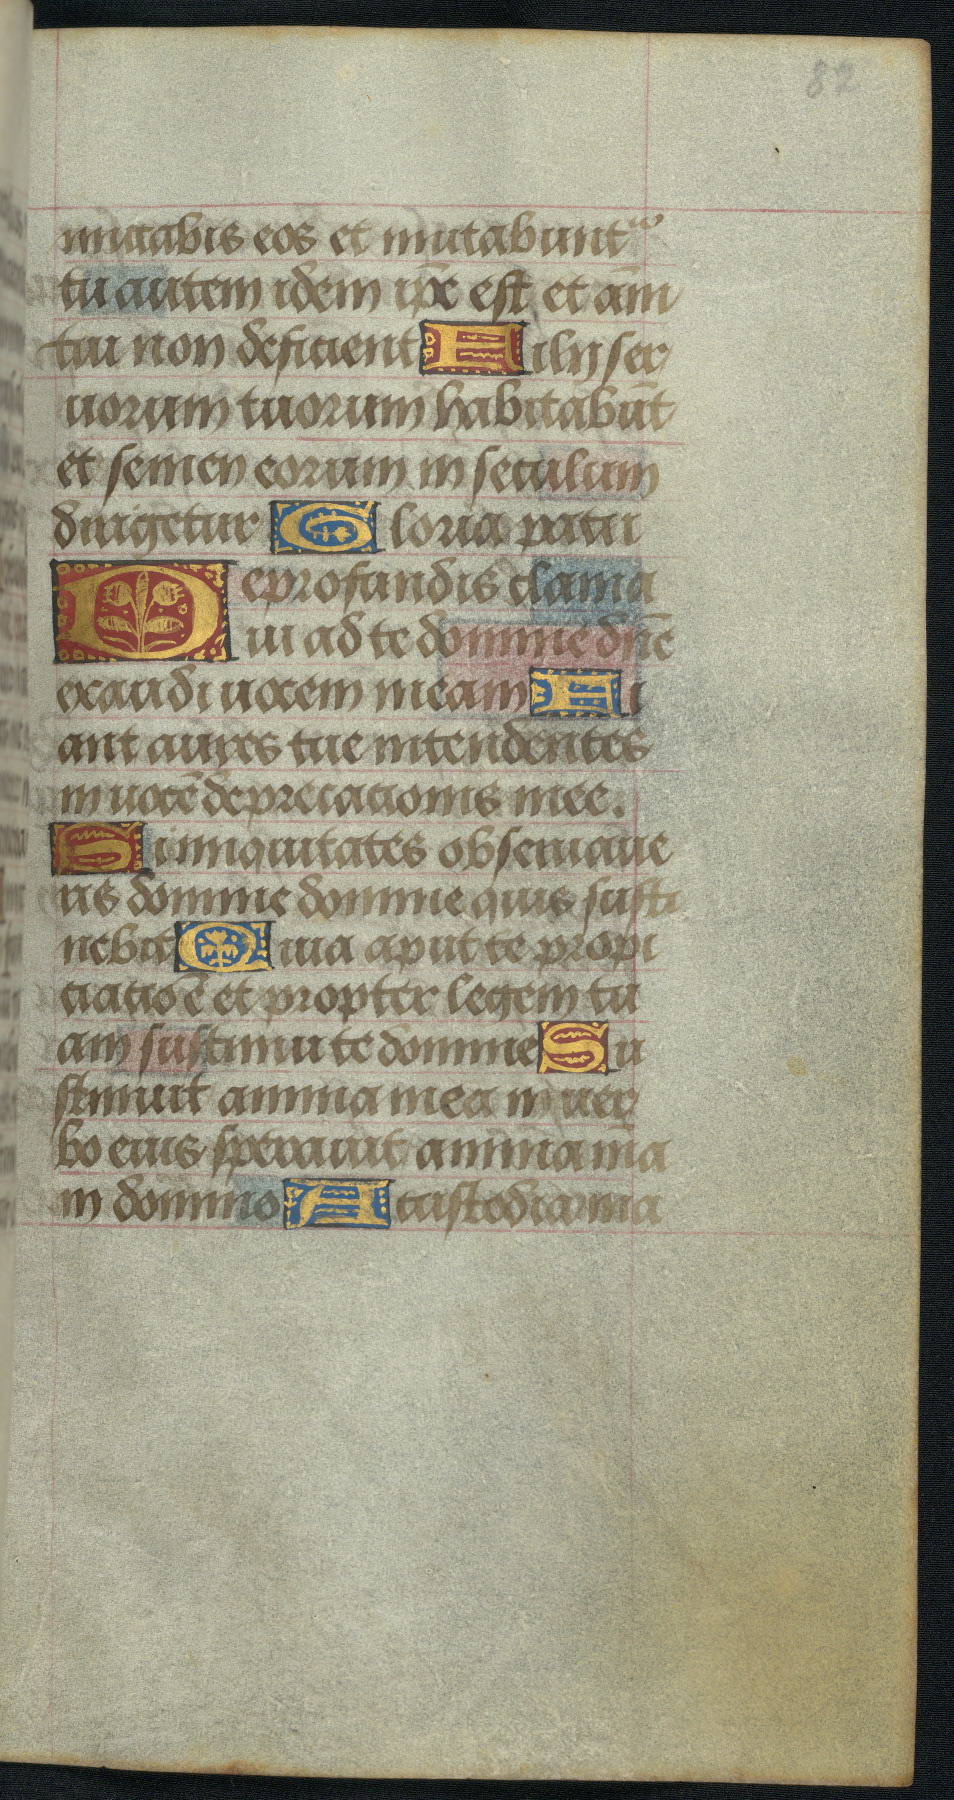 82
mutabis eos et mutabunt᷑
tu autem idem ip̄e est et ām
tui non deficient Filij ser
uorum tuorum habitabūt
et semen eorum in seculum
dirigetur Gloria patri
De profundis clama
ui ad te domine dn̄e
exaudi uocem meam Fi
ant aures tue intendentes
in uocē deprecationis mee.
Si iniquitates obseruaue
ris domine domine quis susti
nebit Quia aput te propi
ciatio ē et propter legem tu
am sustinui te domine Su
stinuit anima mea in uer
bo eius sperauit anima m̄a
in domino A custodia ma